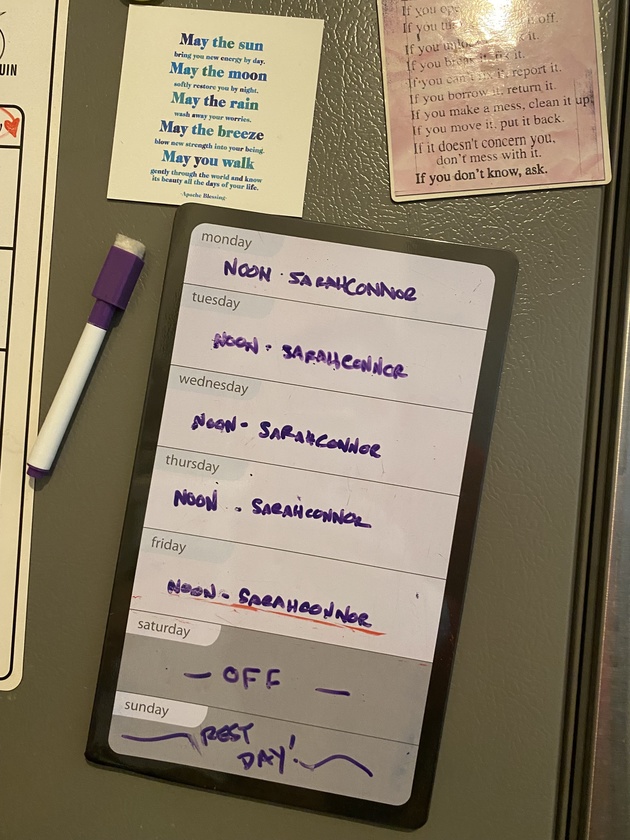 UIN
May the sun
bring you new energy by day.
May the moon
softly restore you by night.
May the rain
wash away your worries.
May the breeze
blow new strength into your being.
May you walk
gently through the world and know
its beauty all the days of your life.
-Apache Blessing-
If you ope
If you tu off.
If you it.
If you break it, fix it.
If you can't fix it, report it.
If you borrow it, return it.
If you make a mess, clean it up.
If you move it, put it back.
If it doesn't concern you,
don't mess with it.
If you don't know, ask.
monday
NOON - SARAHCONNOR
tuesday
NOON - SARAHCONNOR
wednesday
NOON - SARAHCONNOR
thursday
NOON - SARAHCONNOR
friday
NOON - SARAHCONNOR
saturday
— OFF —
sunday
REST
DAY!